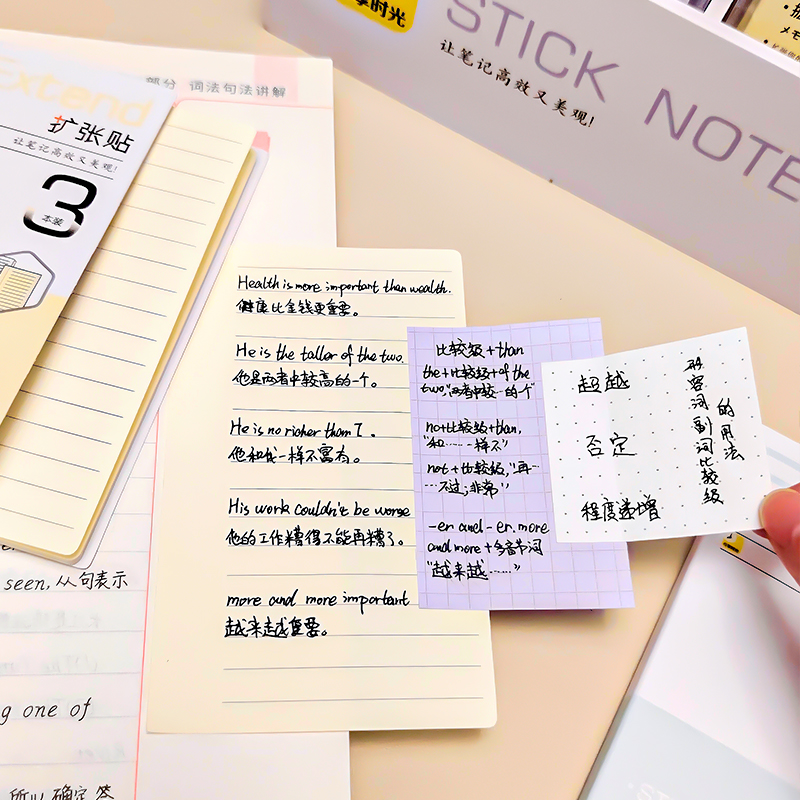 享时光
STICK NOTE
让笔记高效又美观!
メモ
部分 词法句法讲解
Extend
扩张贴
让笔记高效又美观!
3
本装
Health is more important than wealth.
健康比金钱更重要。
He is the taller of the two.
他是两者中较高的一个。
He is no richer than I.
他和我一样不富有。
His work couldn't be worse
他的工作糟得不能再糟了。
more and more important
越来越重要。
比较级+than
the+比较级+of the
two,"两者中较…的个"
no+比较级+than,
"和……一样不"
not+比较级,"再…
…不过;非常"
-er and -er. more
and more+多音节词
"越来越……"
超越
否定
程度递增
形容词副词比较级
的用法
seen,从句表示
g one of
所以确定答